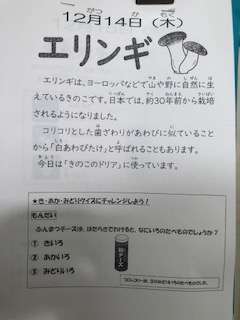 12月14日(木)
エリンギ
エリンギは、ヨーロッパなどで山や野に自然に生
えているきのこです。日本では、約30年前から栽培
されるようになりました。
コリコリとした歯ざわりがあわびに似ていること
から「白あわびたけ」と呼ばれることもあります。
今日は「きのこのドリア」に使っています。
★き・あか・みどりクイズにチャレンジしよう!
もんだい
ふんまつチーズは、はたらきでわけると、なにいろのたべものでしょうか?
① きいろ
② あかいろ
③ みどりいろ
粉チーズ